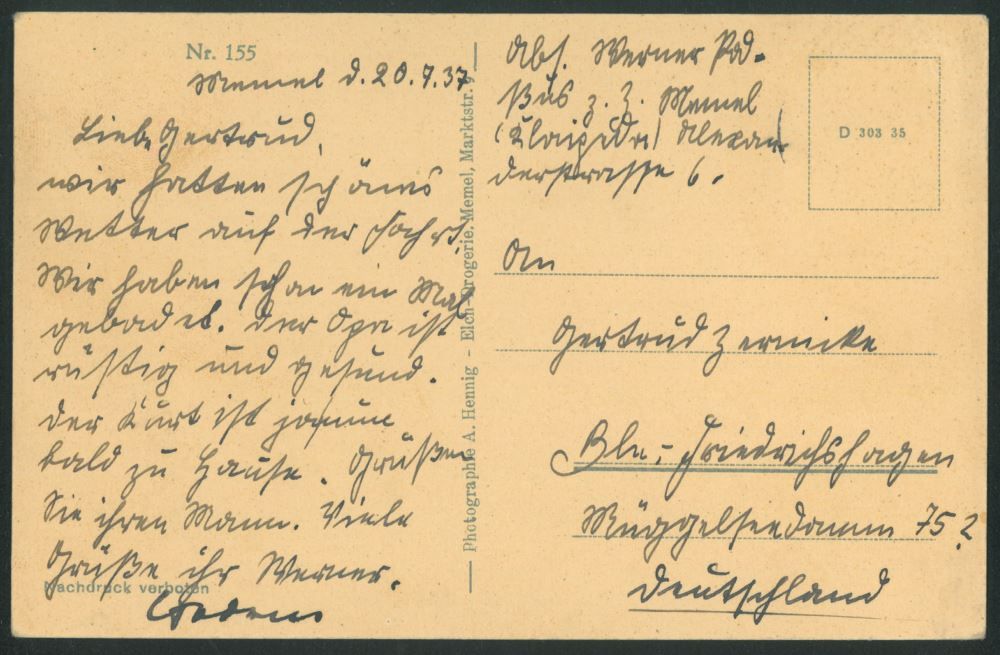 Nr. 155
Memel d. 20.7.37
Liebe Gertrud,
wir hatten schöns
Wetter auf der Fahrt.
Wir haben schon ein Mal
gebadet. Der Opa ist
rüstig und gesund.
Der Kurt ist ja nun
bald zu Hause. Grüßen
Sie ihren Mann. Viele
Grüße ihr Werner.
Nachdruck verboten
Photographie A. Hennig - Elch-Drogerie. Memel, Marktstr. 9
Abs. Werner Pod-
z. Z. Memel
(Klaipeda) Alexan
derstrasse 6.
D 303 35
An
Gertrud Zernicke
Bln.-Friedrichshagen
Müggelseedamm 75
Deutschland